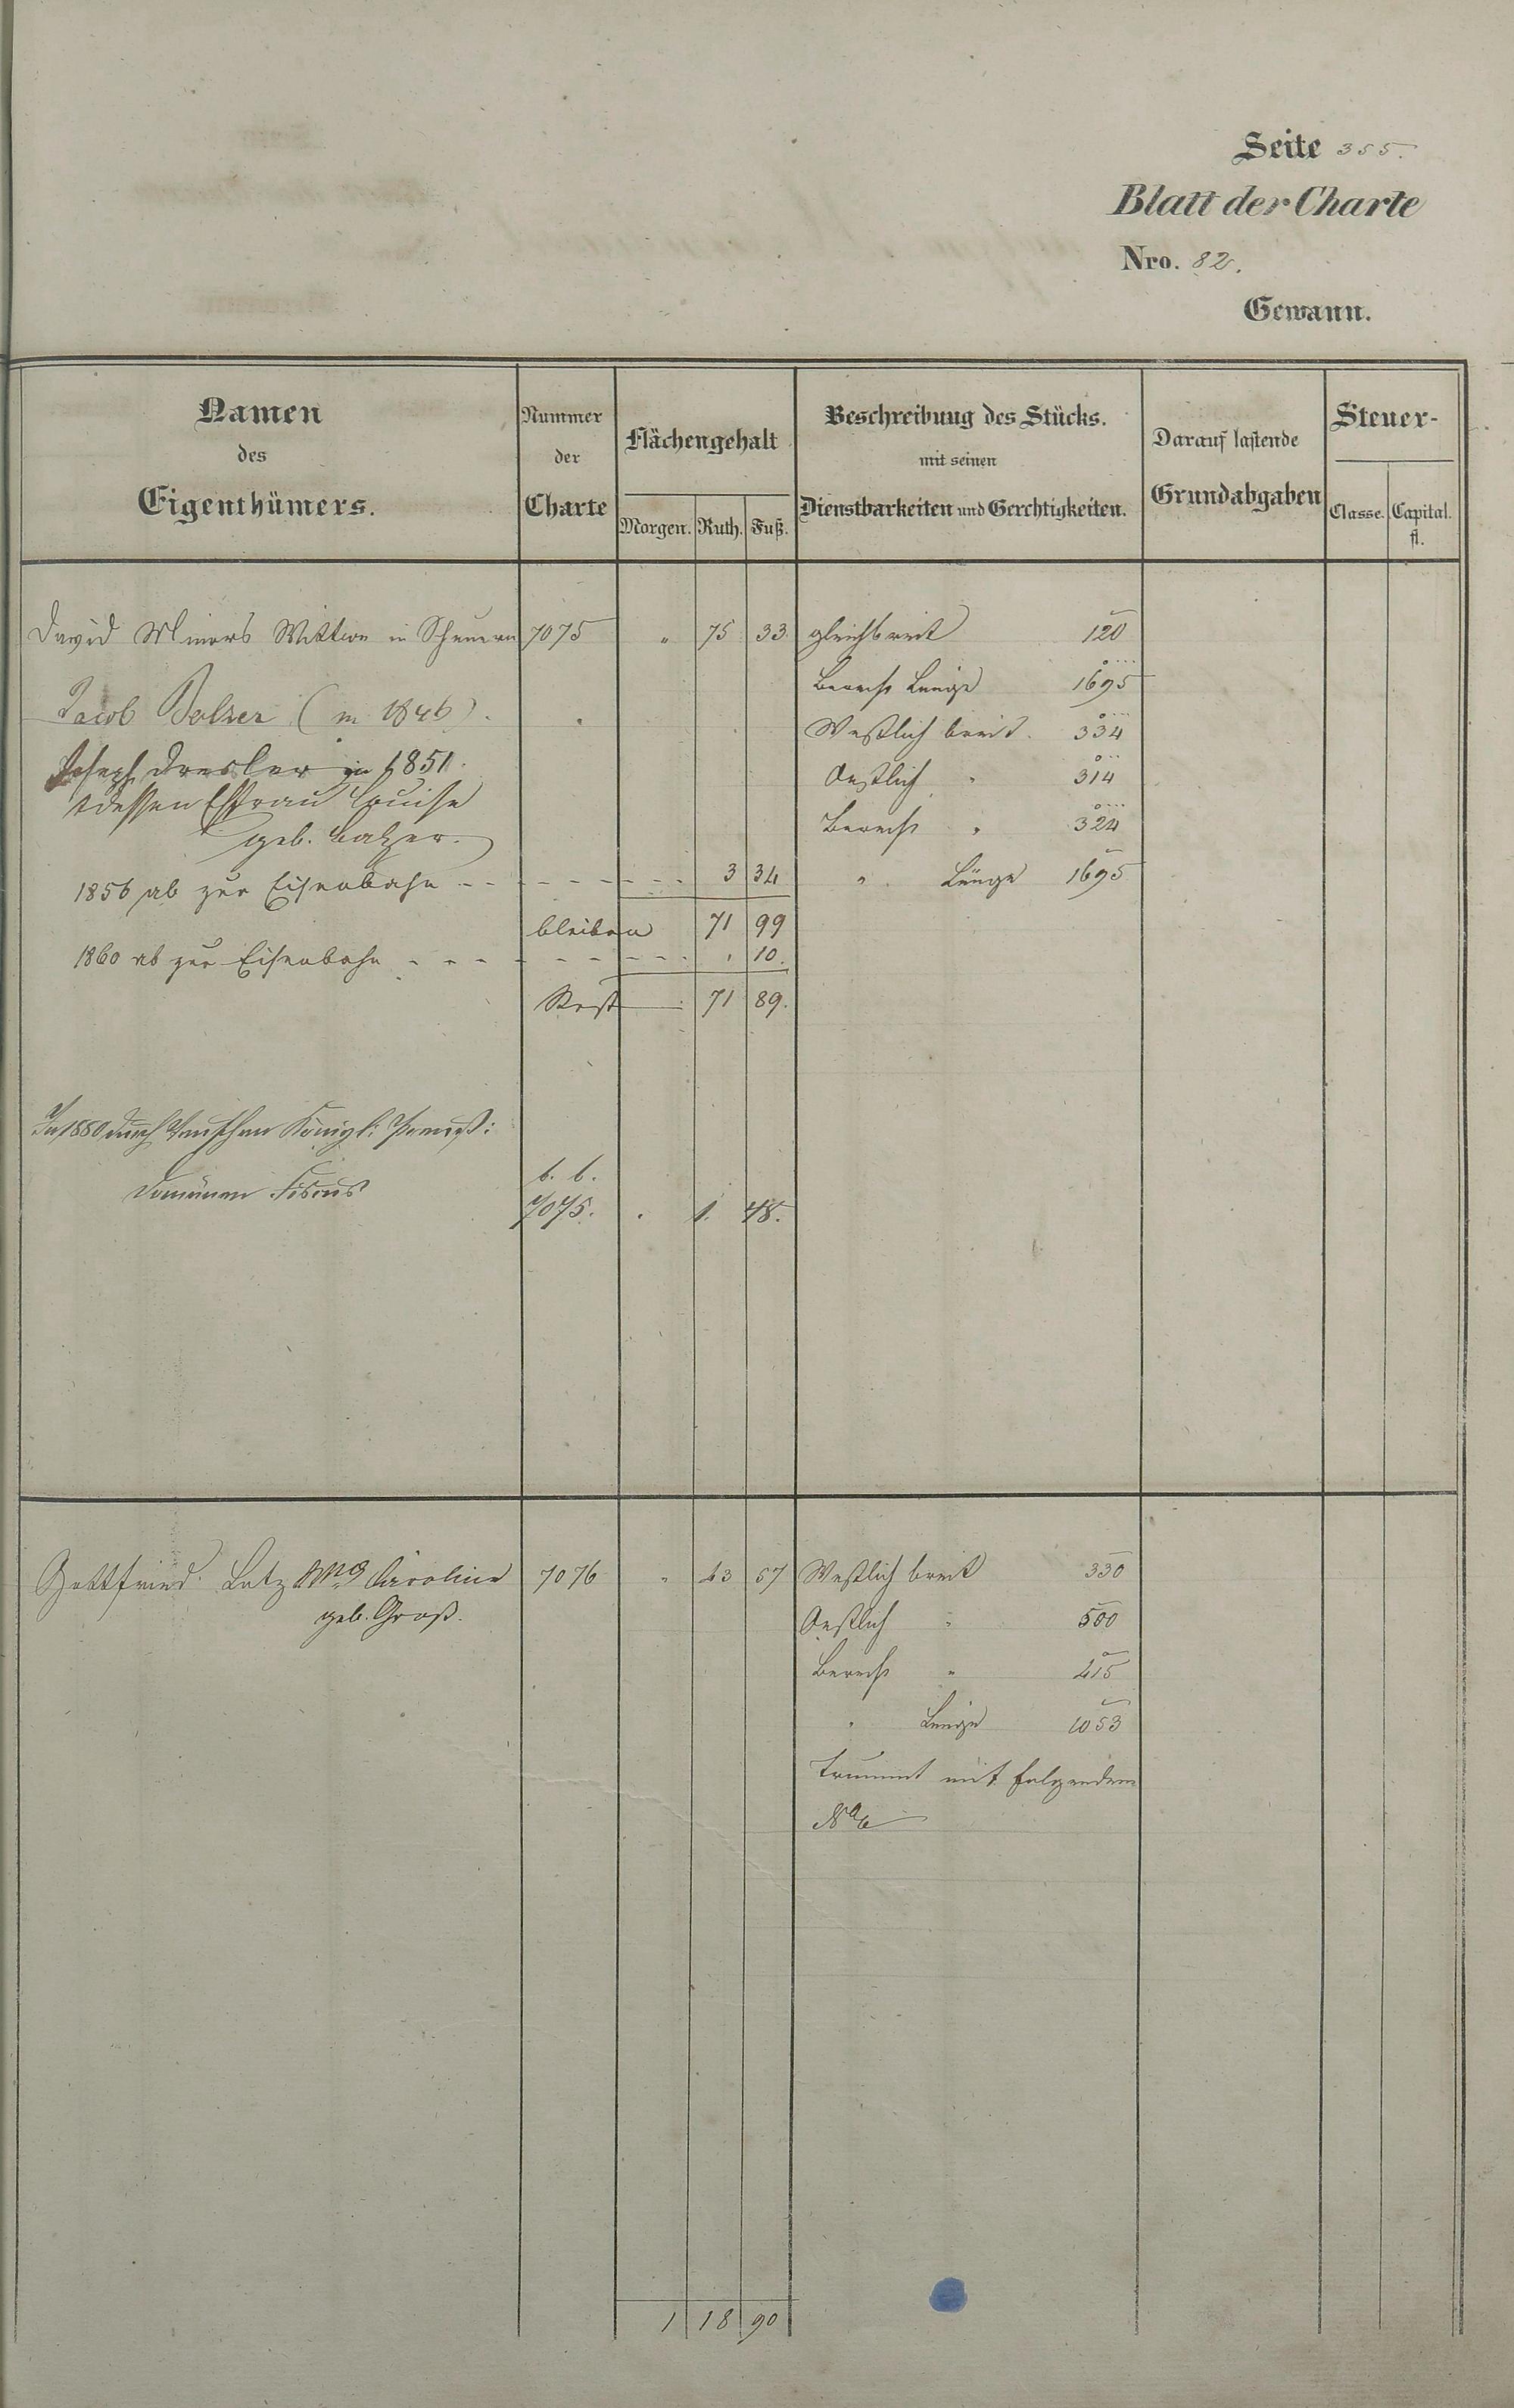 Seite 355.
Blatt der Charte
Nro. 82.
Gewann.
Namen des Eigenthümers.
Nummer der Charte
Flächengehalt
Morgen. Ruth. Fuß.
Beschreibung des Stücks. mit seinen Dienstbarkeiten und Gerechtigkeiten.
Darauf lastende Grundabgaben
Steuer-
Classe. Capital. fl.
David Minors Wittwe in Scheuern 7075 " 75 33 gleichbreit 120
Berechn Länge 1695
Jacob Balzer (in 1846).
Westlich breit 334
Joseph Dresler in 1851.
Oestlich " 314
u dessen Ehfrau Louise
Berechn " 324
geb. Balzer.
1856 ab zur Eisenbahn - - - - - - - 3 34 " Länge 1695
bleiben 71 99
1860 ab zur Eisenbahn - - - - - - - " 10.
Rest 71 89.
In 1880 durch Tausch an Königl: Preuß:
Domänen Fiscus
b. b.
7075. . 1. 48.
Gottfried Lotz Wwe Caroline 7076 " 43 57 Westlich breit 330
geb. Groß.
Oestlich " 500
Berechn " 415
" Länge 1053
kommt mit folgendem
No
1 18 90